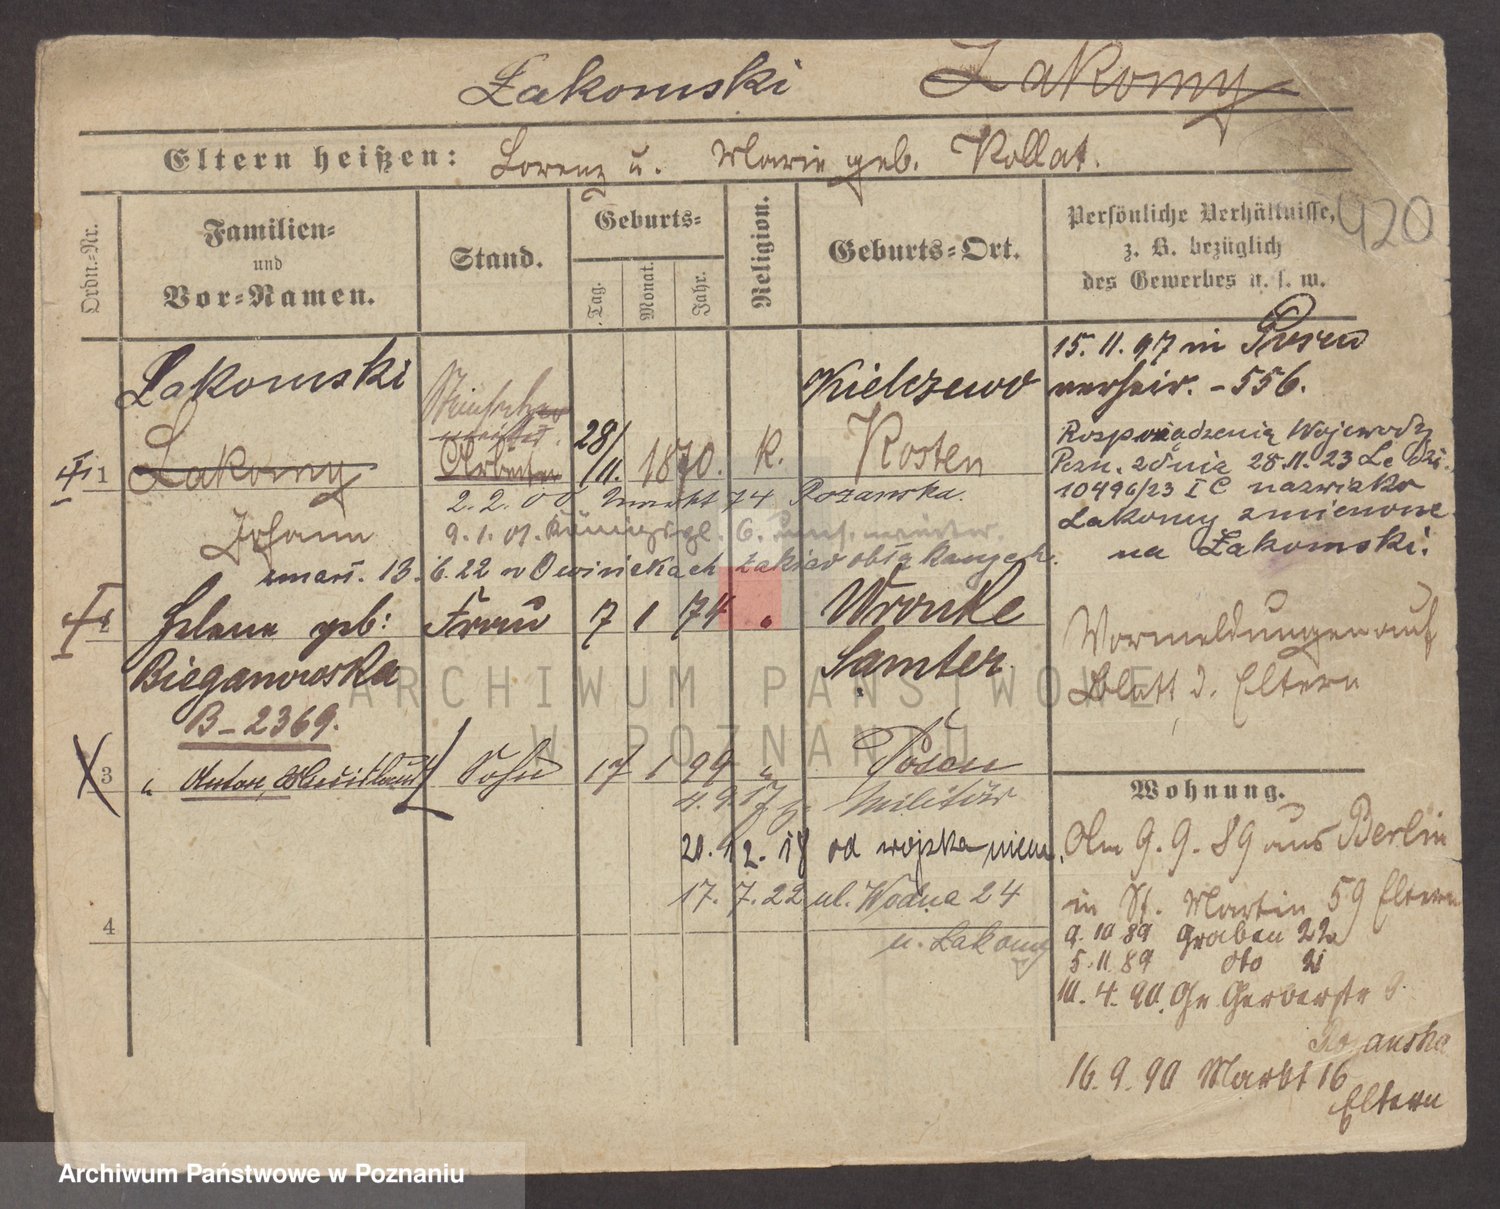 Łakomski Łakomy
Eltern heißen: Lorenz u. Marie geb. Kollat.
Ordn.-Nr.
Familien- und Vor-Namen.
Stand.
Geburts-
Tag.
Monat.
Jahr.
Religion.
Geburts-Ort.
Persönliche Verhältnisse,
z. B. bezüglich
des Gewerbes u. s. w.
920
1
Łakomski
Łakomy
Johann
Arbeiter
28/
11.
1870.
K.
Kielczewo
Kosten
2.2.00 74 Rozanska.
9.1.01. Königspl. 6.
zmarł. 13.6.22 w Owińskach zakład obłąkanych.
2
Helene geb:
Bieganowska
B-2369.
Frau
7 1 74 "
Wronke
Samter.
3
" Anton,
Sohn
17 1 99 "
Posen
4.9.17 Militär
20.12.18 od wojska niem.
17.7.22 ul. Wodna 24
u. Łakomy
4
15.11.97 in Posen
verheir. - 556.
Rozporządzenia Wojewody
Pozn. z dnia 28.11.23 L. dz.
10496/23 I C nazwisko
Łakomy zmienione
na Łakomski.
Vormeldungen auf
Blatt d. Eltern
Wohnung.
Am 9.9.89 aus Berlin
in St. Martin 59 Eltern
9.10 89 Graben 22a
5.11.89 dto
10.4.90. Gr Gerberstr
Rozanska
16.9.90 Markt 16
Eltern
ARCHIWUM PAŃSTWOWE
W POZNANIU
Archiwum Państwowe w Poznaniu